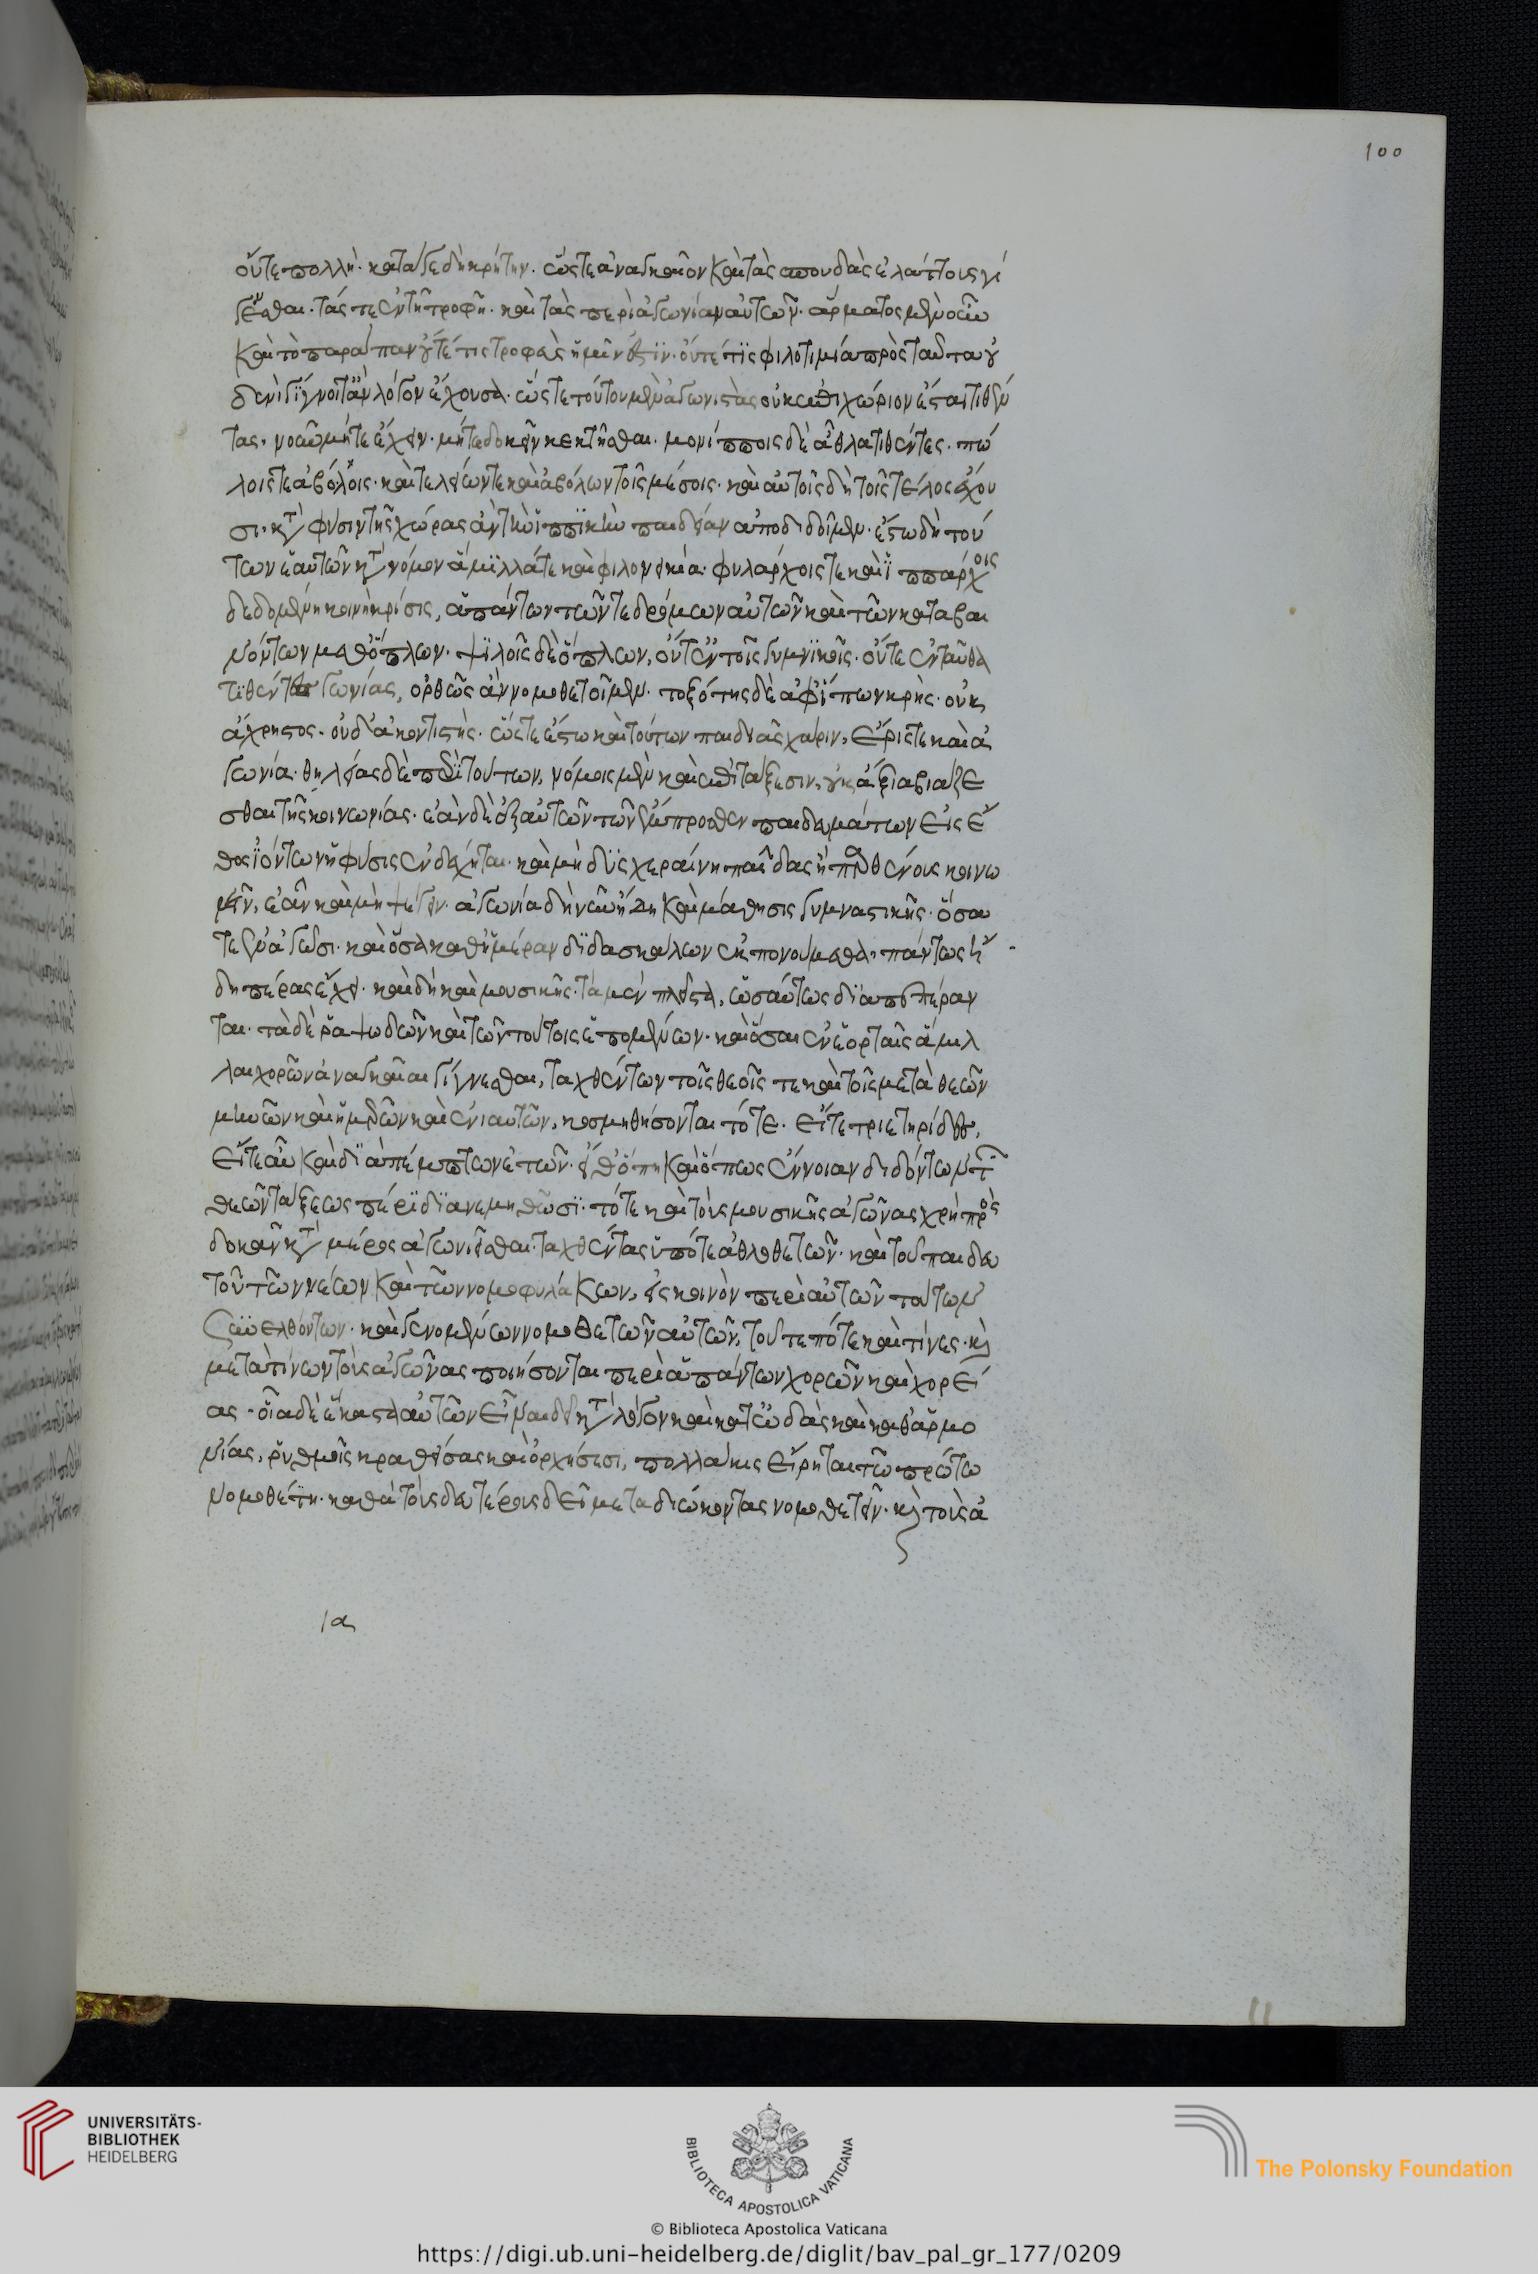 100
οὔτε πολλὴ· κατά γε δὴ κρήτην. ὥστε ἀναγκαῖον καὶ τὰς σπουδὰς ἐλάττους γί
γνεσθαι· τάς τε ἐν τῇ τροφῇ· καὶ τὰς περὶ ἀγωνίαν αὐτῶν· ἅρματος μὲν οὖν
καὶ τὸ παράπαν οὔτέ τις τροφεὺς ἡμῖν ἐστὶν· οὐτέ τις φιλοτιμία πρὸς ταῦτα οὐ
δενὶ γίγνοιτ' ἂν λόγον ἔχουσα· ὥστε τούτου μὲν ἀγωνιστὰς οὐκ ἐπιχώριον ἔσται τιθέν
τας· νοῦν μήτε ἔχειν· μήτε δοκεῖν κεκτῆσθαι· μονίπποις δὲ ἆθλα τιθέντες· πώ
λοις τε ἀβόλοις· καὶ τελείων τε καὶ ἀβόλων τοῖς μέσοις· καὶ αὐτοῖς δὴ τοῖς τέλος ἔχου
σι· κατὰ φύσιν τῆς χώρας ἂν τὴν ἱππικὴν παιδείαν ἀποδιδοῖμεν· ἔστω δὴ τού
των ἑαυτῶν κατὰ νόμον ἅμιλλά τε καὶ φιλονεικία· φυλάρχοις τε καὶ ἱππάρχοις
δεδομένη κοινὴ κρίσις, ἁπάντων τῶν τε δρόμων αὐτῶν καὶ τῶν καταβαι
νόντων μεθ' ὅπλων· ψιλοῖς δὲ ὅπλων, οὔτ' ἐν τοῖς γυμνικοῖς· οὔτε ἐνταῦθα
τιθέντες ἀγωνίας, ὀρθῶς ἂν νομοθετοῖμεν· τοξότης δὲ ἀφ' ἵππων κρὴς· οὐκ
ἄχρηστος· οὐδ' ἀκοντιστὴς· ὥστε ἔστω καὶ τούτων παιδιᾶς χάριν, ἔρις τε καὶ ἀ
γωνία· θηλείας δὲ περὶ τούτων, νόμοις μὲν καὶ ἐπιτάξεσιν, οὐκ ἄξια βιάζε
σθαι τῆς κοινωνίας· ἐὰν δὲ ἐξ αὐτῶν τῶν ἔμπροσθεν παιδευμάτων εἰς ἔ
θος ἰόντων ἡ φύσις ἐνδέχηται· καὶ μὴ δυσχεραίνῃ παῖδας ἢ παρθένους κοινω
νεῖν, ἐᾶν καὶ μὴ ψέγειν· ἀγωνία δὴ νῦν ἤδη καὶ μάθησις γυμναστικῆς· ὅσα
τε ἐν ἀγῶσι· καὶ ὅσα καθ' ἡμέραν διδασκάλων ἐκπονούμεθα· πάντως ἤ
δη πέρας ἔχει· καὶ δὴ καὶ μουσικῆς· τὰ μὲν πλεῖστα, ὡσαύτως διαπεπέραν
ται· τὰ δὲ ῥαψωδῶν καὶ τῶν τούτοις ἑπομένων· καὶ ὅσαι ἐν ἑορταῖς ἅμιλ
λαι χορῶν ἀναγκαῖαι γίγνεσθαι, ταχθέντων τοῖς θεοῖς τε καὶ τοῖς μετὰ θεῶν
μηνῶν καὶ ἡμερῶν καὶ ἐνιαυτῶν, κοσμηθήσονται τότε· εἴτε τριετηρίδες,
εἴτε αὖ καὶ διὰ πέμπτων ἐτῶν· εἴθ' ὅπῃ καὶ ὅπως ἔννοιαν διδόντων τ(ῶν)
θεῶν τάξεως πέρι διανεμηθῶσι· τότε καὶ τοὺς μουσικῆς ἀγῶνας χρὴ προσ
δοκᾶν κατὰ μέρος ἀγωνιεῖσθαι· ταχθέντας ὑπό τε ἀθλοθετῶν· καὶ τοῦ παιδευ
τοῦ τῶν νέων καὶ τῶν νομοφυλάκων, εἰς κοινὸν περὶ αὐτῶν τούτων
συνελθόντων· καὶ γενομένων νομοθετῶν αὐτῶν, τοῦ τε πότε καὶ τίνες· καὶ
μετὰ τίνων τοὺς ἀγῶνας ποιήσονται περὶ ἁπάντων χορῶν καὶ χορεί
ας· οἷα δὲ ἕκαστα αὐτῶν εἶναι δεῖ κατὰ λόγον καὶ κατ' ᾠδὰς καὶ καθ' ἁρμο
νίας, ῥυθμοῖς κραθείσας καὶ ὀρχήσεσι, πολλάκις εἴρηται τῷ πρώτῳ
νομοθέτῃ· καθὰ τοὺς δευτέρους δεῖ μεταδιώκοντας νομοθετεῖν· καὶ τοὺς ἀ
ια
11
UNIVERSITÄTS-
BIBLIOTHEK
HEIDELBERG
BIBLIOTECA APOSTOLICA VATICANA
The Polonsky Foundation
© Biblioteca Apostolica Vaticana
https://digi.ub.uni-heidelberg.de/diglit/bav_pal_gr_177/0209